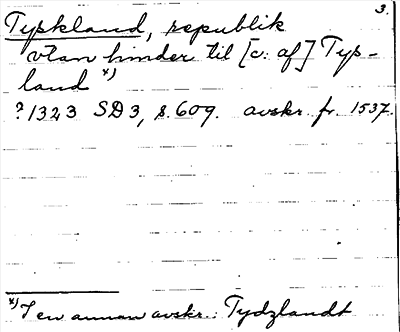 3.
Tyskland, republik
vtan hinder til [c: af] Tys-
land x)
? 1323 SD3, s. 609. avskr. fr. 1537.
x) I en annan avskr.: Tydzlandt